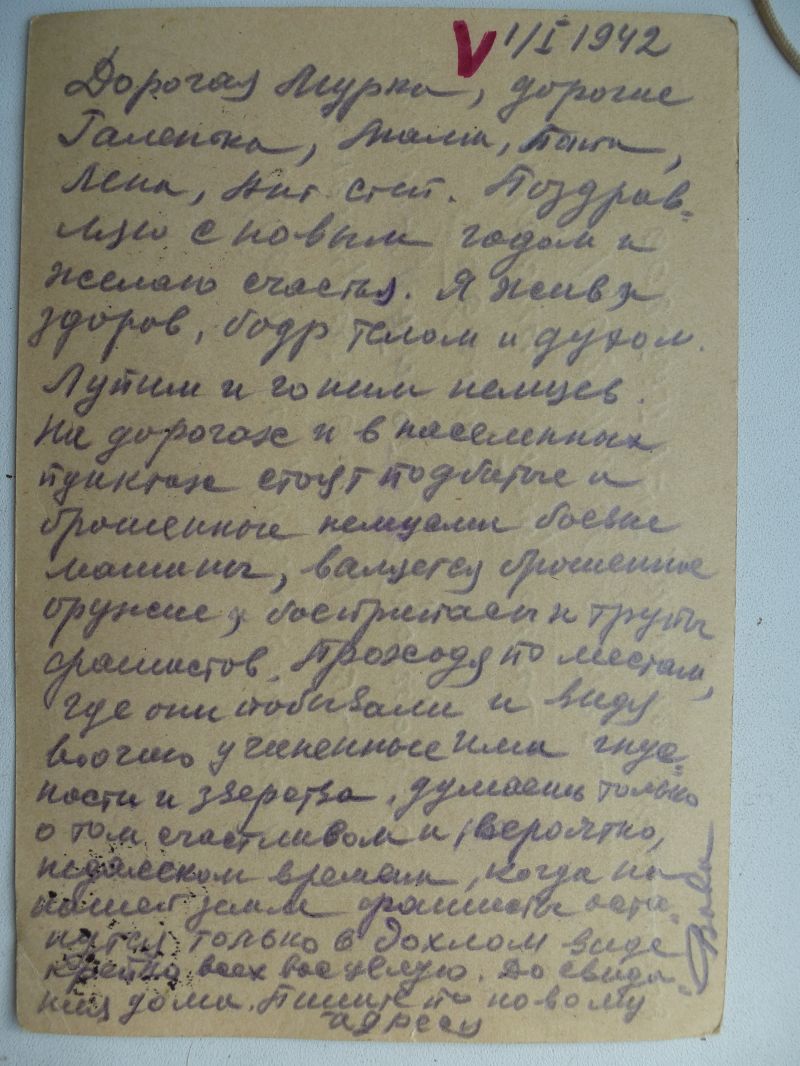 V 1/I 1942
Дорогая Мурка, дорогие
Галенька, Мама, Папа,
Лена, Ант. Степ. Поздрав-
ляю с новым годом и
желаю счастья. Я жив и
здоров, бодр телом и духом.
Лупим и гоним немцев.
На дорогах и в населенных
пунктах стоят подбитые и
брошенные немцами боевые
машины, валяется брошенное
оружие, боеприпасы и трупы
фашистов. Проходя по местам,
где они побывали и видя
воочию учиненные ими гнус-
ности и зверства, думаешь только
о том счастливом и, вероятно,
недалеком времени, когда на
нашей земле фашисты оста-
нутся только в дохлом виде
Крепко всех вас целую. До свида-
ния дома. Пишите по новому
адресу
Вова